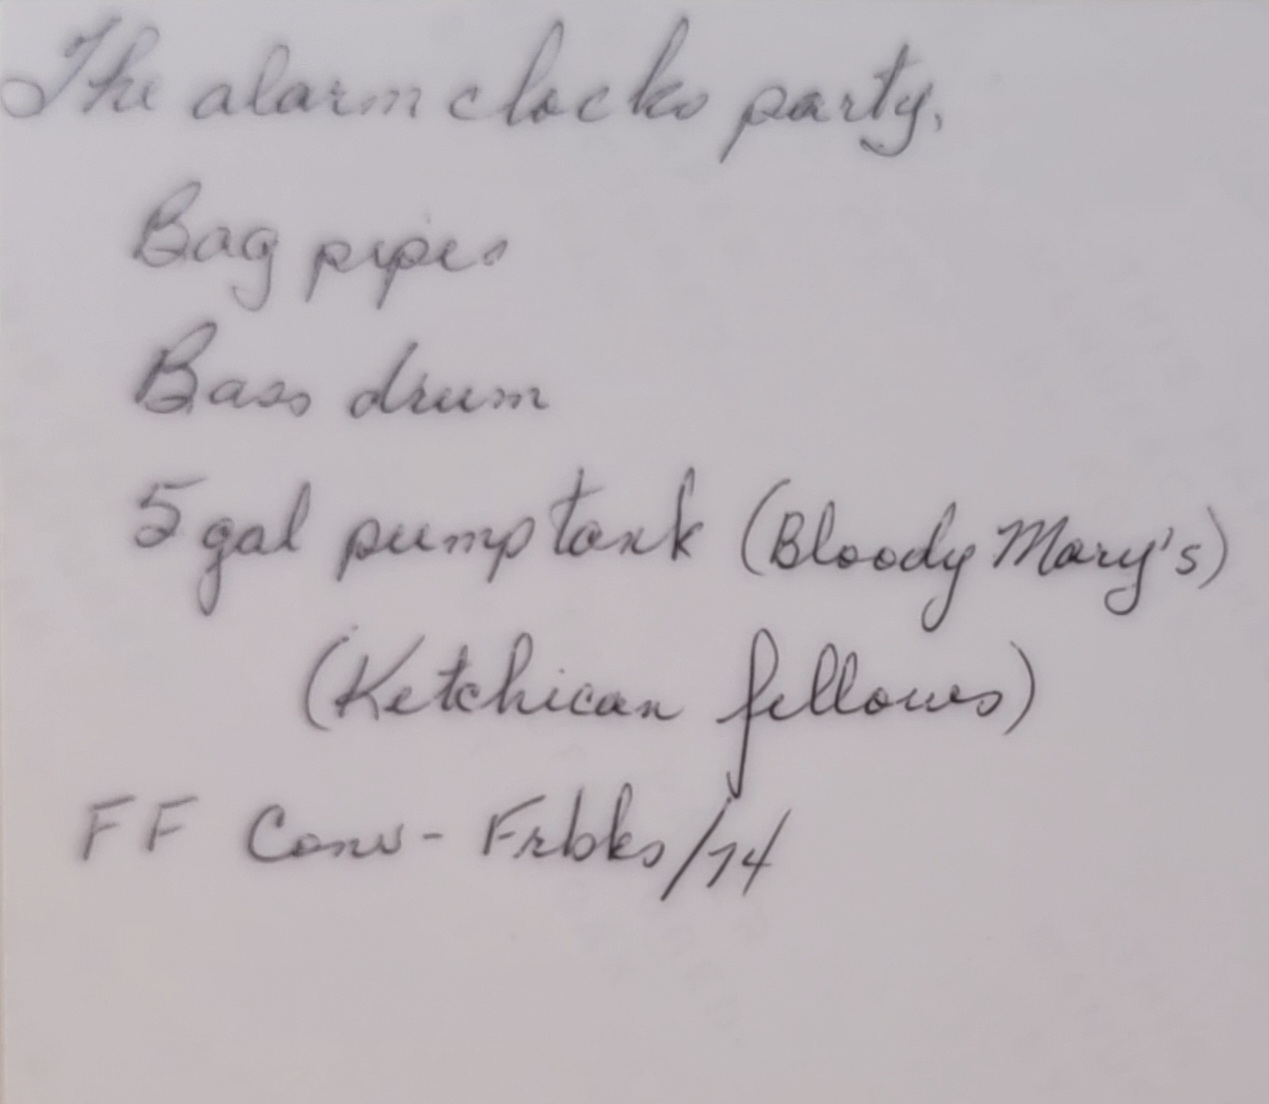 The alarm clocks party,
Bag pipes
Bass drum
5 gal pump tank (Bloody Mary's)
(Ketchican fellows)
FF Conv - Frbks/74